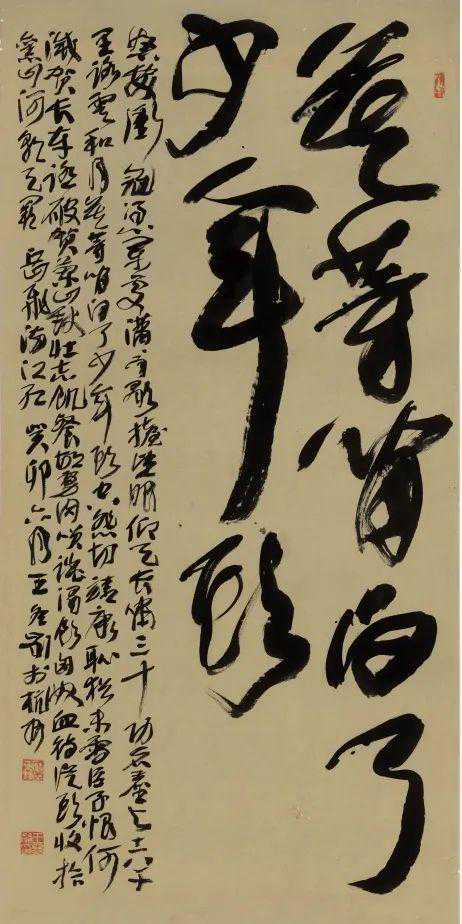 莫等闲白了
少年头
怒髮衝冠 瀟 歇抬望眼仰天长啸三十功名尘与土八千
里路雲和月莫等闲白了少年头空悲切靖康耻犹未雪臣子恨何
滅 长车踏破贺兰山缺壮志飢餐胡虏肉笑谈渴饮匈奴血待从头收拾
山河朝天阙 岳飛满江红 癸卯六月王 书杭州